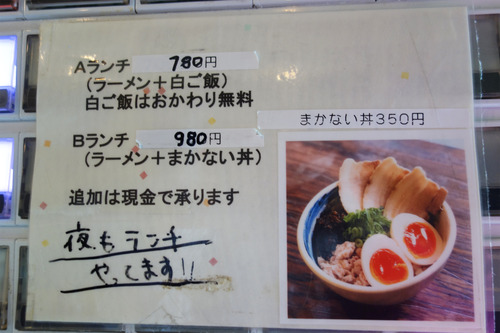 Aランチ 780円
(ラーメン+白ご飯)
白ご飯はおかわり無料
Bランチ 980円
(ラーメン+まかない丼)
追加は現金で承ります
夜もランチ
やってます!!
まかない丼350円